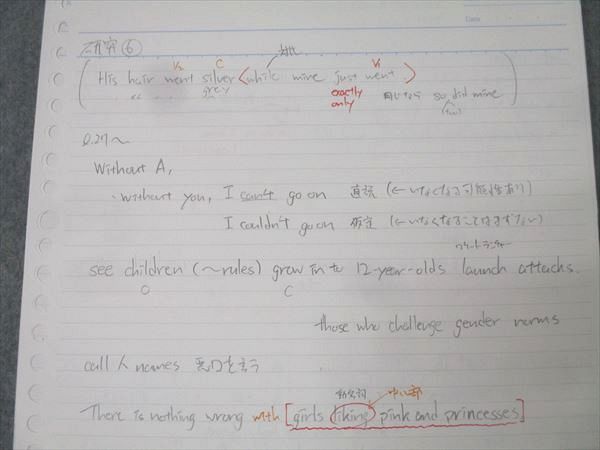 研究⑥
対比
V₂ C V₁
His hair went silver <while mine just went>
grey exactly 同じなら so did mine
only (too)
Q.27～
Without A,
・without you, I can't go on 直説 (←いなくなる可能性あり)
I couldn't go on 仮定 (←いなくなることはまずない)
see children (～rules) grow into 12-year-olds launch attacks.
O C
those who challenge gender norms
call 人 names 悪口を言う
動名詞 中心部
There is nothing wrong with [girls liking pink and princesses]
Date